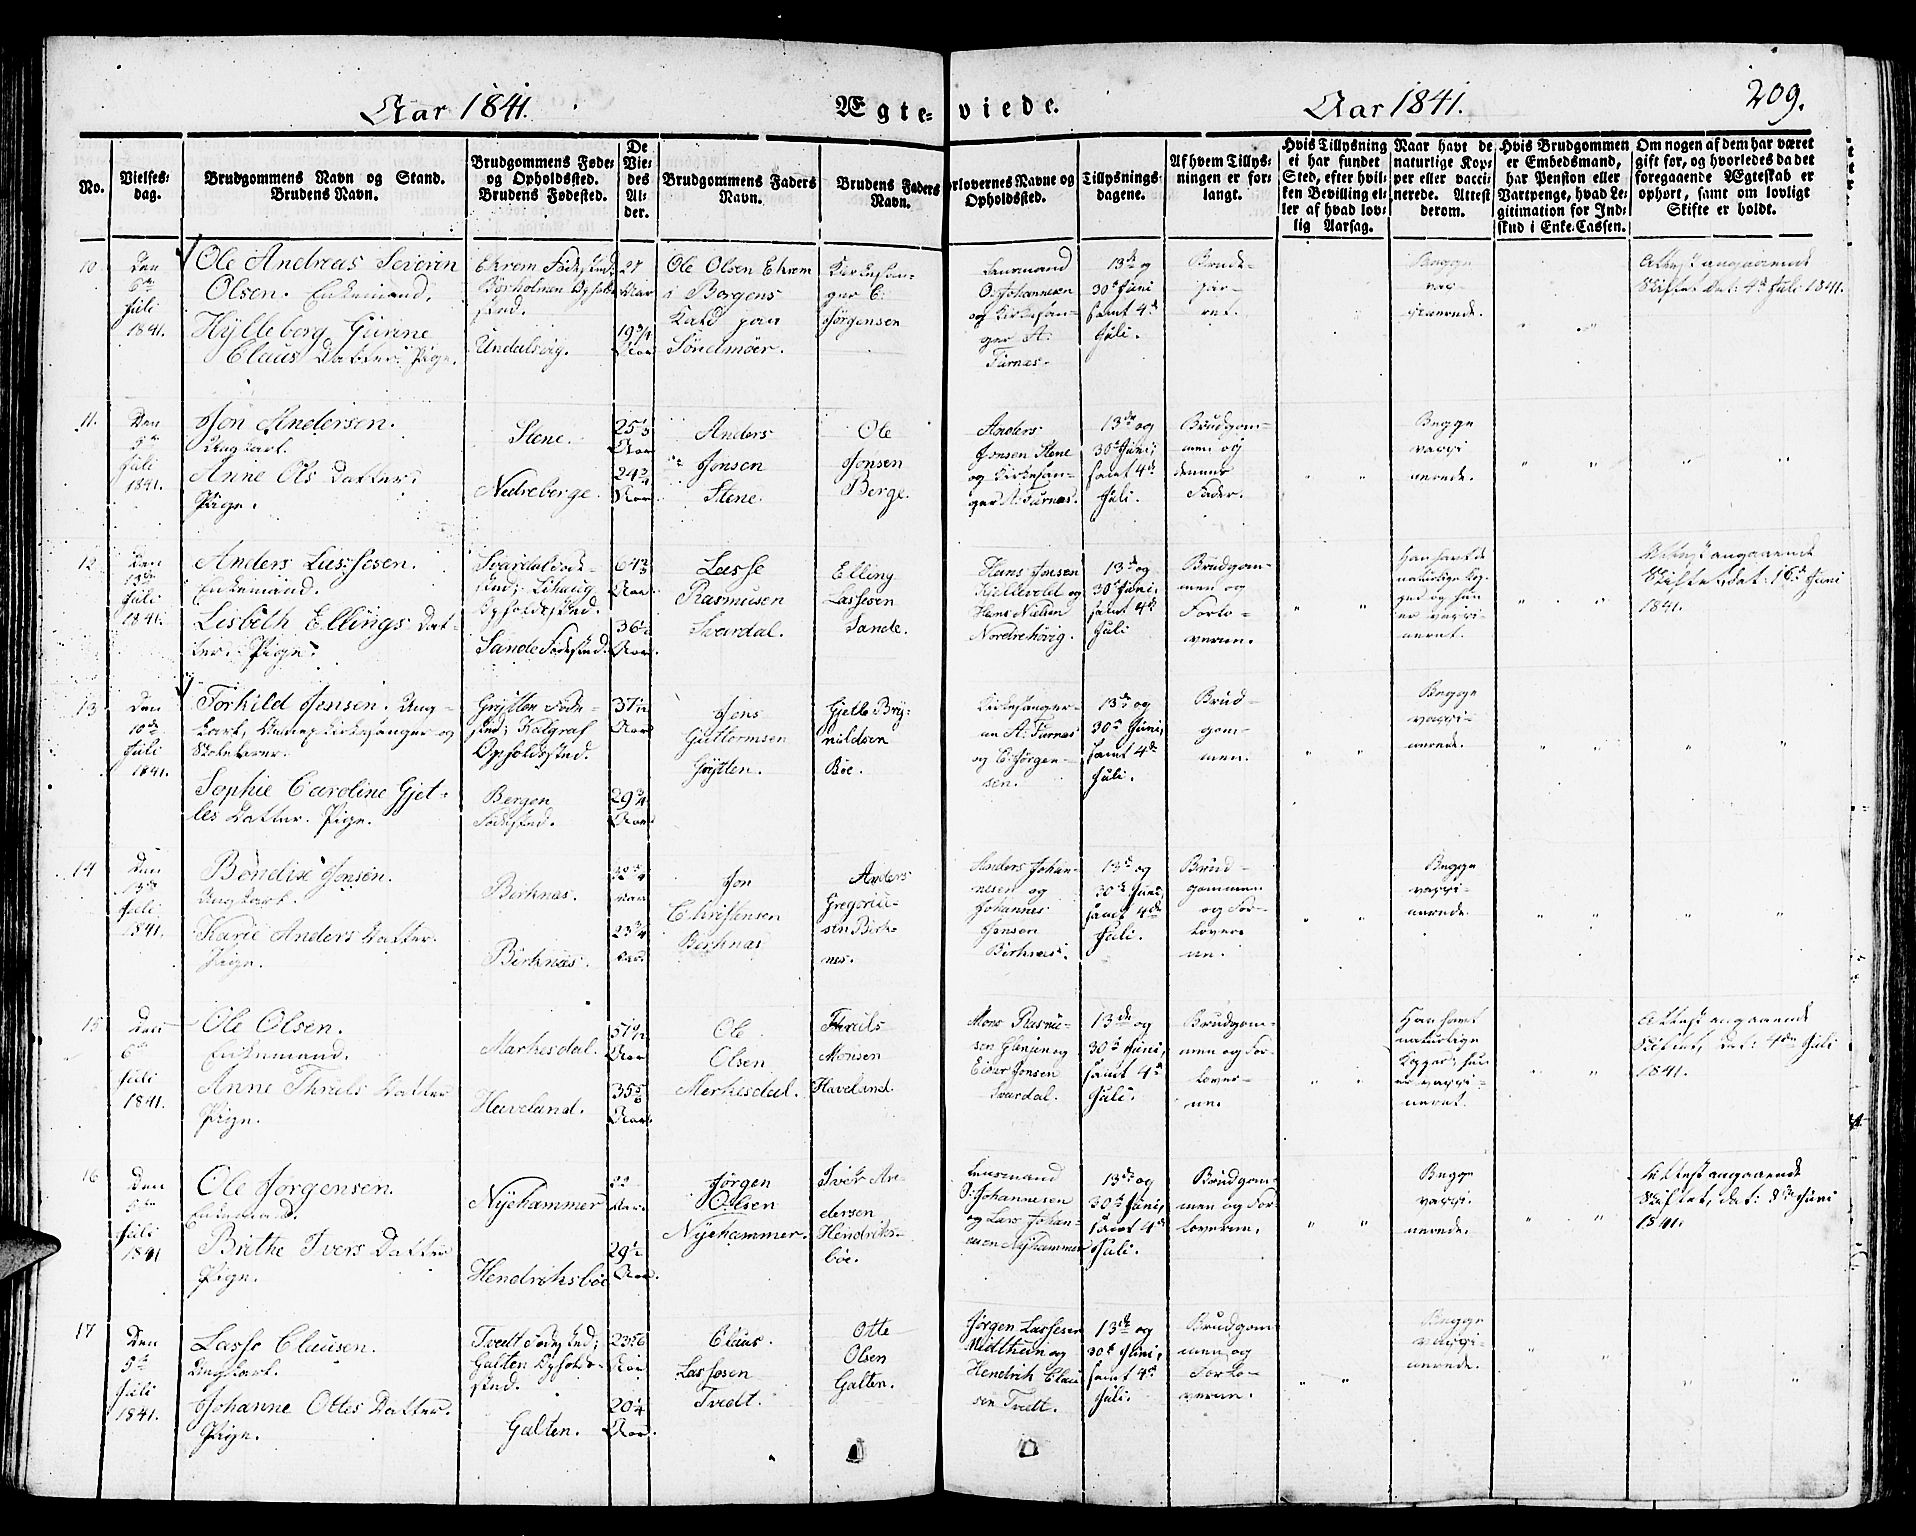 Aar 1841. Ægte- viede. Aar 1841. 209.
No.
Vielses-
dag.
Brudgommens Navn og Stand.
Brudens Navn.
Brudgommens Føde-
og Opholdssted.
Brudens Fødested.
De
Vie-
des
Al-
der.
Brudgommens Faders
Navn.
Brudens Faders
Navn.
orlovernes Navne og
Opholdssted.
Tillysnings-
dagene.
Af hvem Tillys-
ningen er for-
langt.
Hvis Tillysning
ei har fundet
Sted, efter hvil-
ken Bevilling el-
ler af hvad lov-
lig Aarsag.
Naar havt de
naturlige Kop-
per eller vacci-
nerede. Attest
derom.
Hvis Brudgommen
er Embedsmand,
har Pension eller
Vartpenge, hvad Le-
gitimation for Ind-
skud i Enke-Cassen.
Om nogen af dem har været
gift før, og hvorledes da det
foregaaende Ægteskab er
ophørt, samt om lovligt
Skifte er holdt.
10
Den
6te
Juli
1841.
Ole Andreas Severin
Olsen. Enkemand.
Hylleberg Gurine
Claus Datter. Pige.
Ekrem Fødested.
Borholmen Ophold-
sted.
Undalsvig.
27
Aar
19 3/4
Aar
Ole Olsen Ekrem
i Borgens
Kald paa
Söndmöer.
Kirkesan-
ger C:
Jörgensen
Lensmand
O: Johannesen
og Kirkesan-
ger A:
Furnes.
13de og
30te Juni
samt 4de
Juli.
Brude-
par-
ret.
Begge
vac-
cinerede.
" "
Attest angaaende
Skiftet dat: 4de Juli 1841.
11.
Den
9de
Juli
1841.
Jon Andersen.
Ungkarl.
Anne Ols Datter.
Pige.
Stene.
Nedreberge.
25 1/3
Aar
24 3/4
Aar
Anders
Jonsen
Stene.
Ole
Jonsen
Berge.
Anders
Jonsen Stene
og Kirkesan-
ger A: Furnes.
13de og
30te Juni,
samt 4de
Juli.
Brudgom-
men og
dennes
Fader.
" "
Begge
vacci-
nerede.
" "
" "
12
Den
10de
Juli
1841.
Anders Lassesen.
Enkemand.
Lisbeth Ellings Dat-
ter. Pige.
Svardal Føde-
sted; Lihaug
Opholdssted.
Sande Fødested.
64 2/3
Aar.
36 1/2
Aar.
Lasse
Rasmusen
Svardal.
Elling
Lassesen
Sande.
Hans Jonsen
Kjellevold og
Hans Nielsen
Nordrehövig.
13de og
30te Juni,
samt 4de
Juli
Brudgom-
men og
Forlo-
veren.
" "
Han havt de
naturlige Kop-
per og hun
er vacci-
neret.
" "
Attest angaaende
Skiftet, dat: 16de Juni
1841.
13
Den
10de
Juli
1841.
Torkild Jensen. Ung-
karl, Kirkesanger og
Skolelærer.
Sophie Caroline Gjet-
les Datter. Pige.
Grytten Føde-
sted; Kalgraf
Opholdssted.
Bergen
Fødested.
37 1/2
Aar
29 3/4
Aar
Jens
Guttormsen
Grytten.
Gjelle Bry-
nildsen
Böe.
Kirkesanger-
ne A. Furnes
og C: Jörgen-
sen.
13de og
30te Juni,
samt 4de
Juli.
Brud-
gom-
men.
" "
Begge
vacci-
nerede.
" "
" "
14
Den
13de
Juli
1841.
Bendise Jonsen.
Ungkarl.
Karie Anders Datter.
Pige.
Birknæs.
Birknæs.
23 3/4
Jon
Christensen
Birknæs
Anders
Gregoriu-
sen Birk-
nes.
Anders Johan-
nesen og
Johannes
Jonsen
Birknæs.
13de og
30te Juni,
samt 4de
Juli.
Brud-
gommen
og For-
lover-
ne.
" "
Begge
vacci-
nerede.
" "
" "
15
Den
6te
Juli
1841.
Ole Olsen.
Enkemand.
Anne Thruls Datter
Pige.
Markesdal.
Haveland.
51 1/2
Aar
35 5/6
Aar.
Ole
Olsen
Merkesdal.
Thruls
Monsen
Haveland.
Mons Rasmu-
sen Glenjen og
Elder Jonsen
Svardal.
13de og
30te Juni,
samt 4de
Juli.
Brudgom-
men og For-
lover-
ne.
" "
Han havt
naturlige
Kopper; hun
er vacci-
neret.
" "
Attest angaaende
Skiftet, dat: 4de Juli
1841.
16
Den
Juli
1841
Ole Jörgensen.
Enkemand.
Brithe Ivers Datter
Pige.
Nyehammer
Hendriksböe
29 1/2
Aar.
Jörgen
Olsen
Nyehammer.
Iver An-
dersen
Hendriks-
böe.
Lensmand
O: Johannesen
og Lars Johan-
nesen Nyhammer
13de og
30te Juni,
samt 4de
Juli.
Brudgom-
men og For-
loveren.
" "
Begge
vacci-
nerede.
" "
Attest angaaende
Skiftet, dat: 8de Juni
1841.
17
Den
5te
Juli
1841.
Lasse Clausen.
Ungkarl.
Johanne Ottes Datter.
Pige.
Tvedt Fødested;
Galten Opholds-
sted.
Galten.
23 5/6
Aar.
20 1/4
Aar.
Claus
Lassesen
Tvedt.
Otte
Olsen
Galten.
Jörgen Lassesen
Midthun og
Hendrik Clau-
sen Tvedt.
13de og
30te Juni,
samt 4de
Juli.
Brudgom-
men og
Forlo-
veren.
" "
Begge
vacci-
nerede.
" "
" "